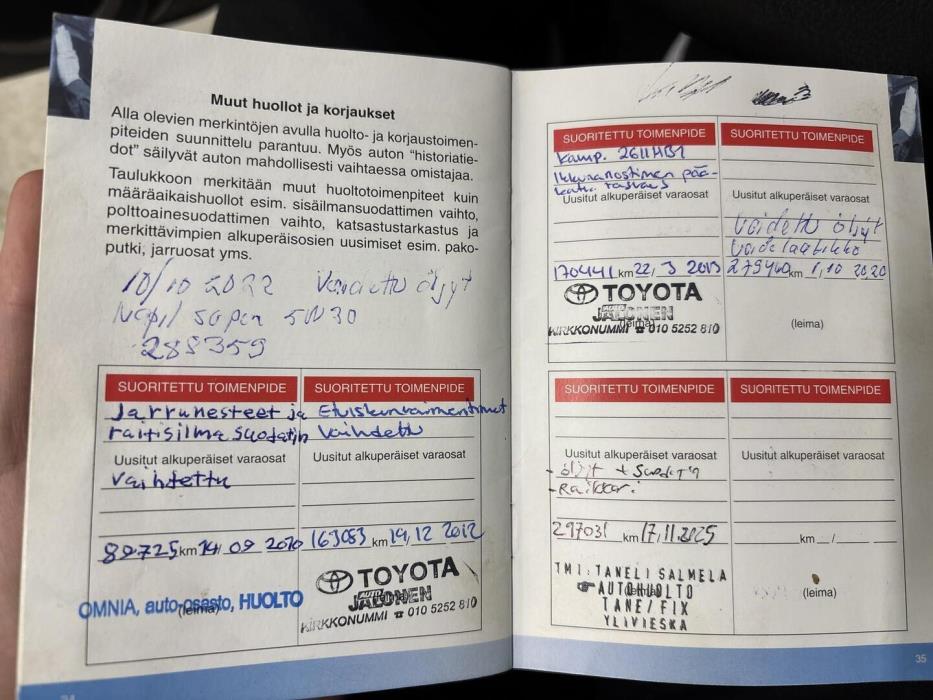 Muut huollot ja korjaukset
Alla olevien merkintöjen avulla huolto- ja korjaustoimen-
piteiden suunnittelu parantuu. Myös auton "historiatie-
dot" säilyvät auton mahdollisesti vaihtaessa omistajaa.
Taulukkoon merkitään muut huoltotoimenpiteet kuin
määräaikaishuollot esim. sisäilmansuodattimen vaihto,
polttoainesuodattimen vaihto, katsastustarkastus ja
merkittävimpien alkuperäisosien uusimiset esim. pako-
putki, jarruosat yms.
10/10 2022 Vaihdettu öljyt
5W30
288359
SUORITETTU TOIMENPIDE
Jarrunesteet ja
raitisilma suodatin
Uusitut alkuperäiset varaosat
Vaihdettu
89725 km 14/09 2010
OMNIA, auto-osasto, HUOLTO
(leima)
SUORITETTU TOIMENPIDE
Etuiskunvaimentimet
Vaihdettu
Uusitut alkuperäiset varaosat
163083 km 19,12 2012
TOYOTA
AUTO
JALONEN
KIRKKONUMMI ☎ 010 5252 810
SUORITETTU TOIMENPIDE
Kamp. 2611HB1
Ikkunanostimen pää-
Uusitut alkuperäiset varaosat
170441 km 22/3 2013
TOYOTA
AUTO
JALONEN
(leima)
KIRKKONUMMI ☎ 010 5252 810
SUORITETTU TOIMENPIDE
Uusitut alkuperäiset varaosat
Vaidettu öljyt
279460 km 1,10 2020
(leima)
SUORITETTU TOIMENPIDE
Uusitut alkuperäiset varaosat
- öljyt +
297031 km 17,11.2025
TMI: TANELI SALMELA
AUTOHUOLTO
TANE/FIX
YLIVIESKA
SUORITETTU TOIMENPIDE
Uusitut alkuperäiset varaosat
km /
(leima)
35